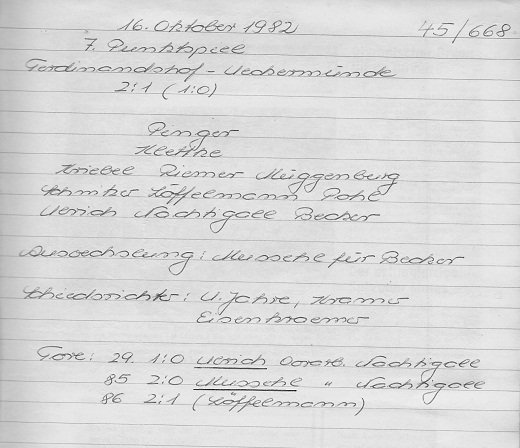 16. Oktober 1982 45/668
7. Punktspiel
Ferdinandshof - Ueckermünde
2:1 (1:0)
Pinger
Klettke
Kriebel Riemer Müggenburg
Schmitker Löffelmann Pohl
Ulrich Nachtigall Becker
Auswechslung: Mussehl für Becker
Schiedsrichter: U. Jahre, Kramer
Eisenkraemer
Tore: 29. 1:0 Ulrich Vorarb. Nachtigall
85 2:0 Mussehl " Nachtigall
86 2:1 (Löffelmann)